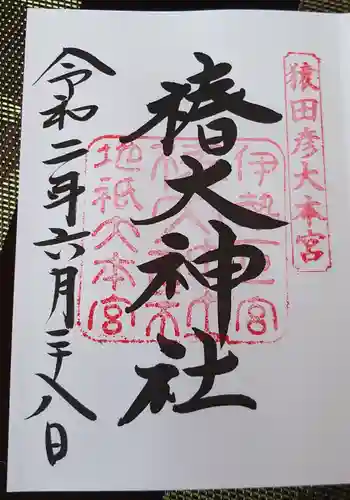 猿田彦大本宮
椿大神社
伊勢一宮
椿大神社
地祇大本宮
令和二年六月二十八日